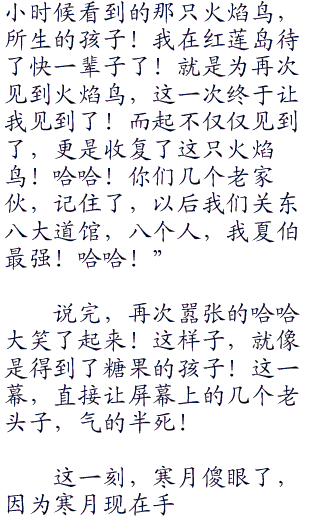 小时候看到的那只火焰鸟，
所生的孩子！我在红莲岛待
了快一辈子了！就是为再次
见到火焰鸟，这一次终于让
我见到了！而起不仅仅见到
了，更是收复了这只火焰
鸟！哈哈！你们几个老家
伙，记住了，以后我们关东
八大道馆，八个人，我夏伯
最强！哈哈！”
说完，再次嚣张的哈哈
大笑了起来！这样子，就像
是得到了糖果的孩子！这一
幕，直接让屏幕上的几个老
头子，气的半死！
这一刻，寒月傻眼了，
因为寒月现在手